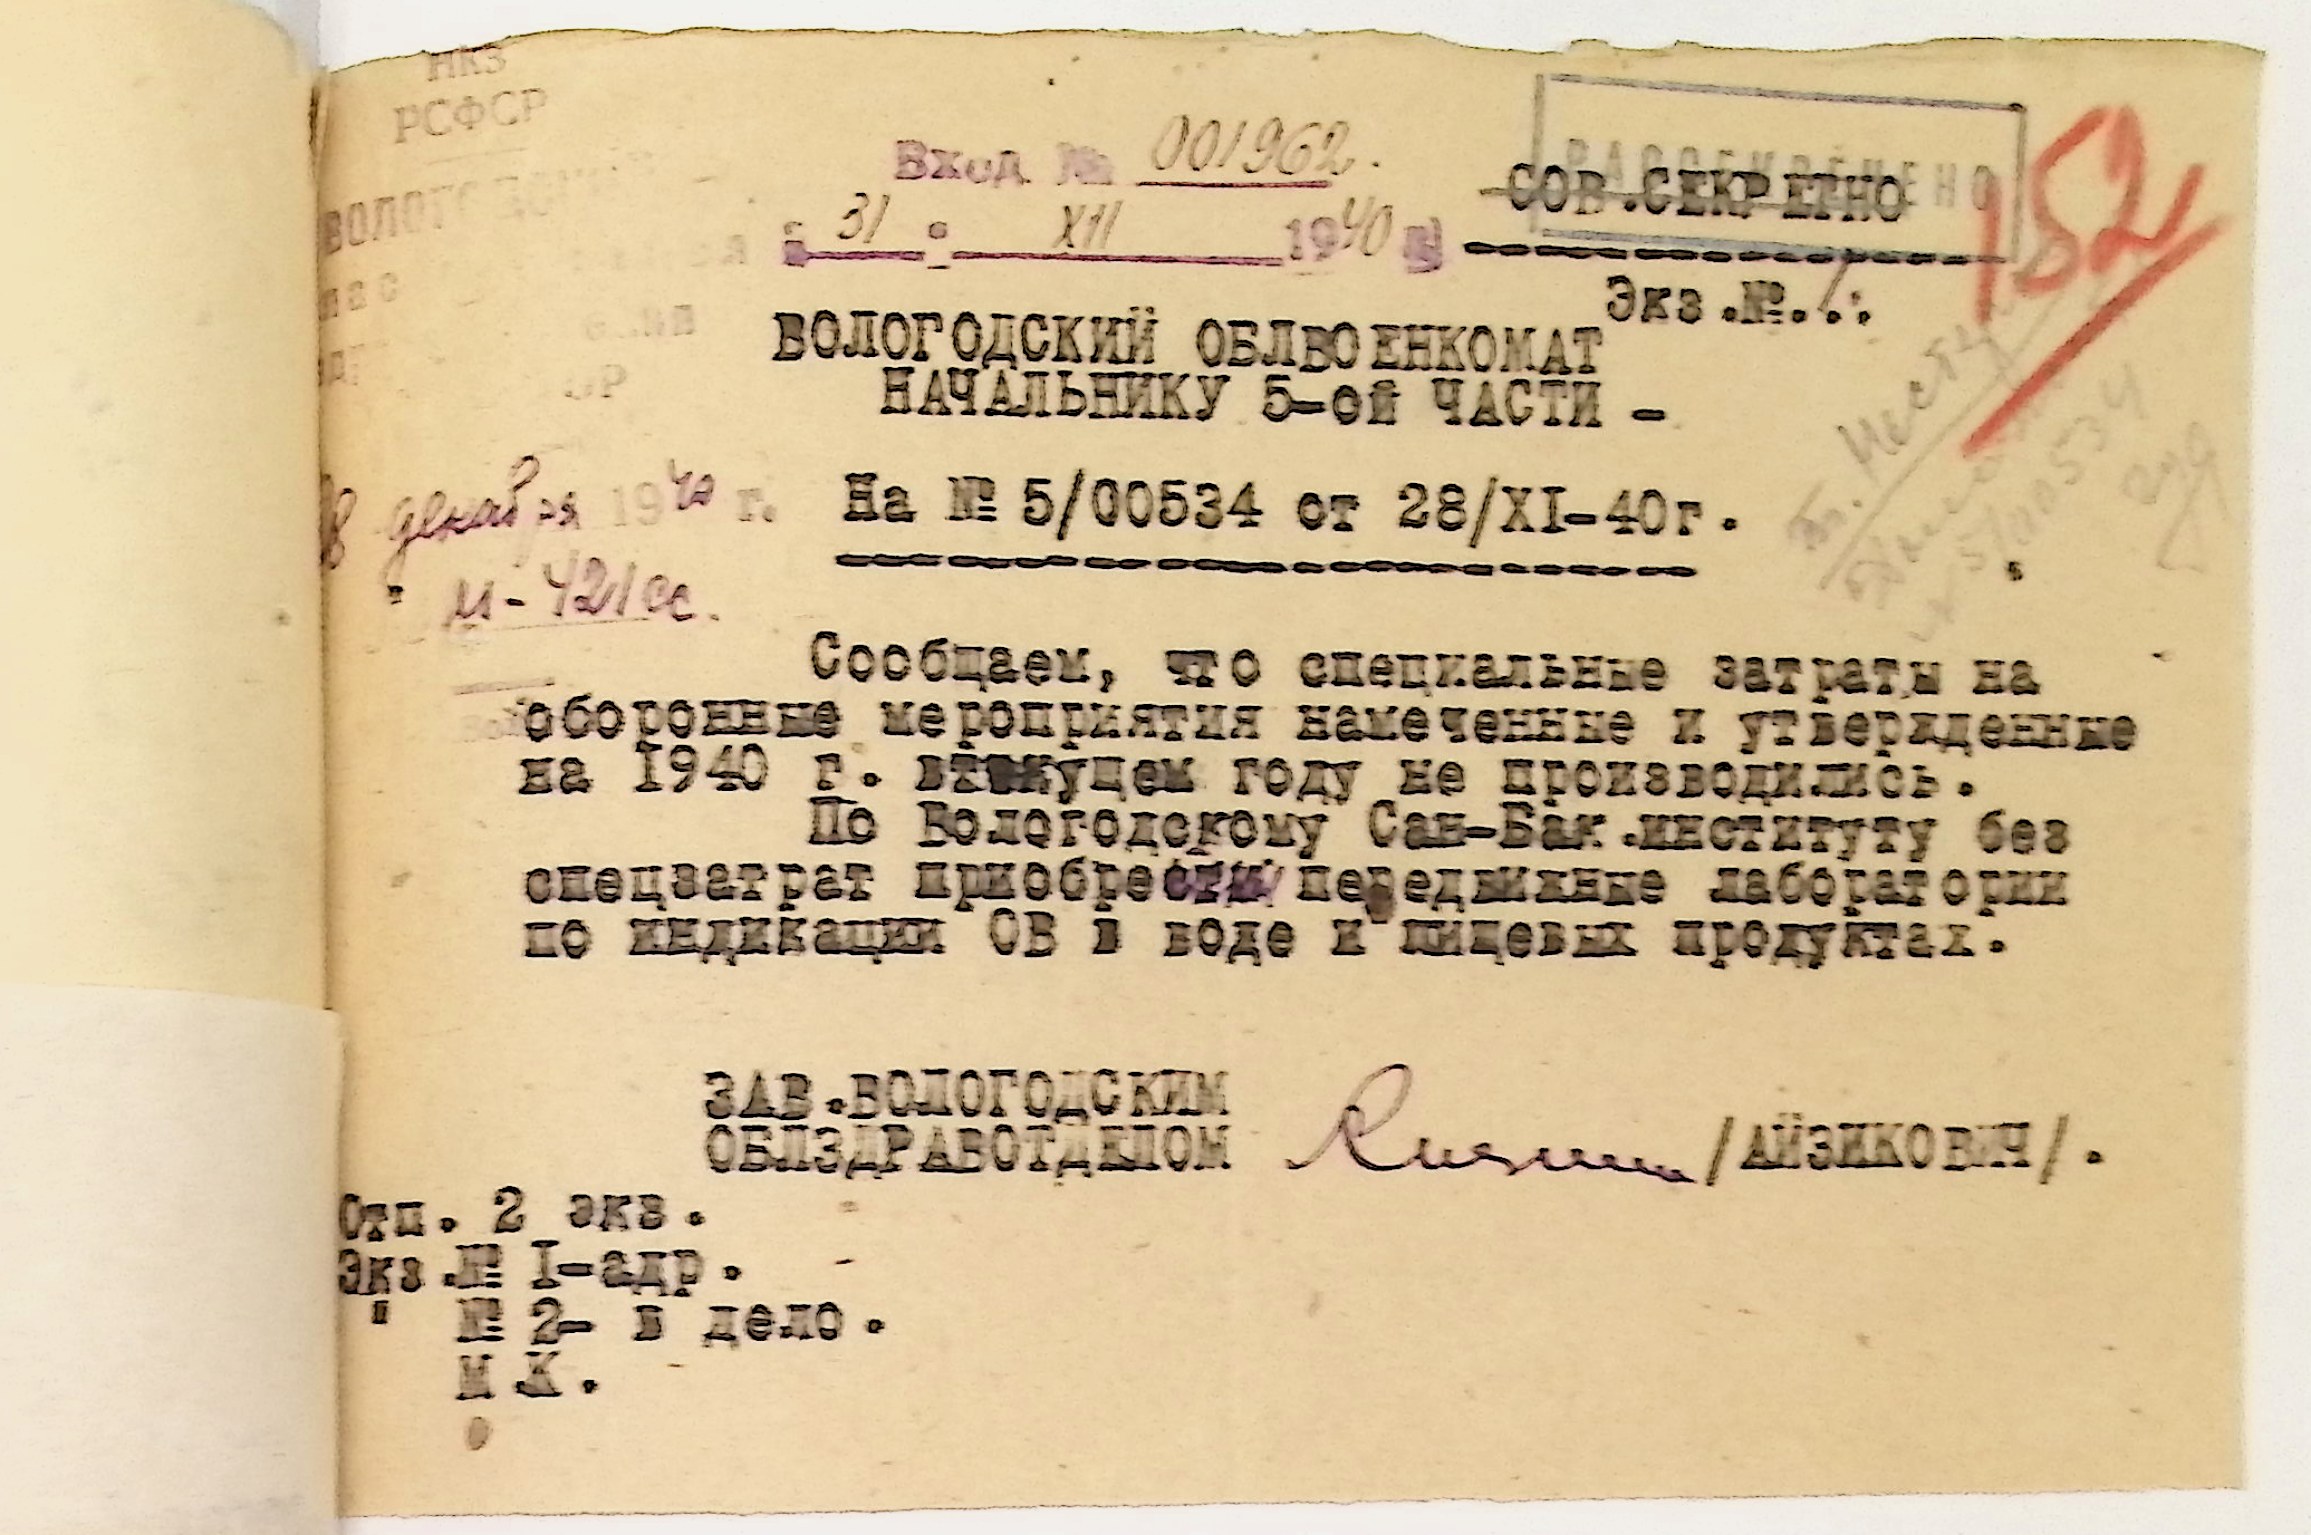 НКЗ
РСФСР
ВОЛОГОДСКИЙ
Вход № 001962.
31 XII 1940 г
РАССЕКРЕЧЕНО
СОВ.СЕКРЕТНО
152
Экз.№.1.
ВОЛОГОДСКИЙ ОБЛВОЕНКОМАТ
НАЧАЛЬНИКУ 5-ой ЧАСТИ -
декабря 1940 г.
На № 5/00534 от 28/XI-40г.
м-421сс.
№ 5/00534
Сообщаем, что специальные затраты на
оборонные мероприятия намеченные и утвержденные
на 1940 г. втекущем году не производились.
По Вологодскому Сан-Бак.институту без
спецзатрат приобрести передвижные лаборатории
по индикации ОВ в воде и пищевых продуктах.
ЗАВ.ВОЛОГОДСКИМ
ОБЛЗДРАВОТДЕЛОМ /АЙЗИКОВИЧ/.
Отп. 2 экз.
Экз.№ I-адр.
" № 2- в дело.
Н.К.